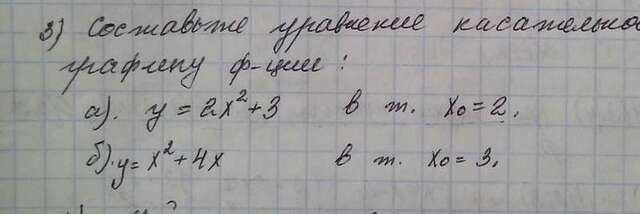 3) Составьте уравнение касательной
графику ф-ции :
а). y = 2x²+3 в т. x₀ = 2.
б). y = x² + 4x в т. x₀ = 3.